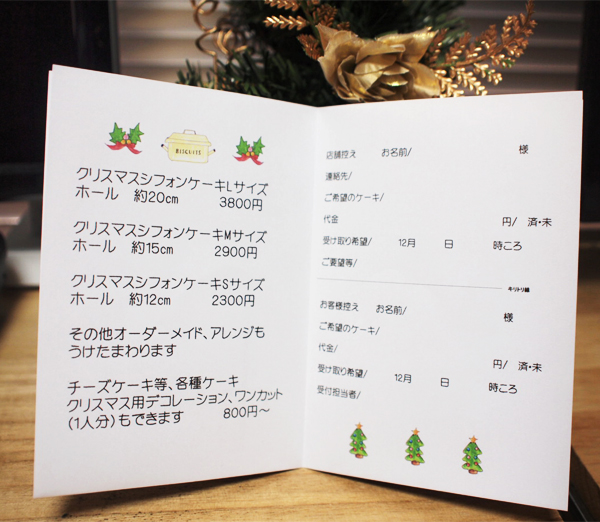 BISCUITS
クリスマスシフォンケーキLサイズ
ホール 約20cm 3800円
クリスマスシフォンケーキMサイズ
ホール 約15cm 2900円
クリスマスシフォンケーキSサイズ
ホール 約12cm 2300円
その他オーダーメイド、アレンジも
うけたまわります
チーズケーキ等、各種ケーキ
クリスマス用デコレーション、ワンカット
(1人分)もできます 800円~
店舗控え お名前/ 様
連絡先/
ご希望のケーキ/
代金 円/ 済・未
受け取り希望/ 12月 日 時ごろ
ご要望等/
キリトリ線
お客様控え お名前/ 様
ご希望のケーキ/
代金/ 円/ 済・未
受け取り希望/ 12月 日 時ごろ
受付担当者/